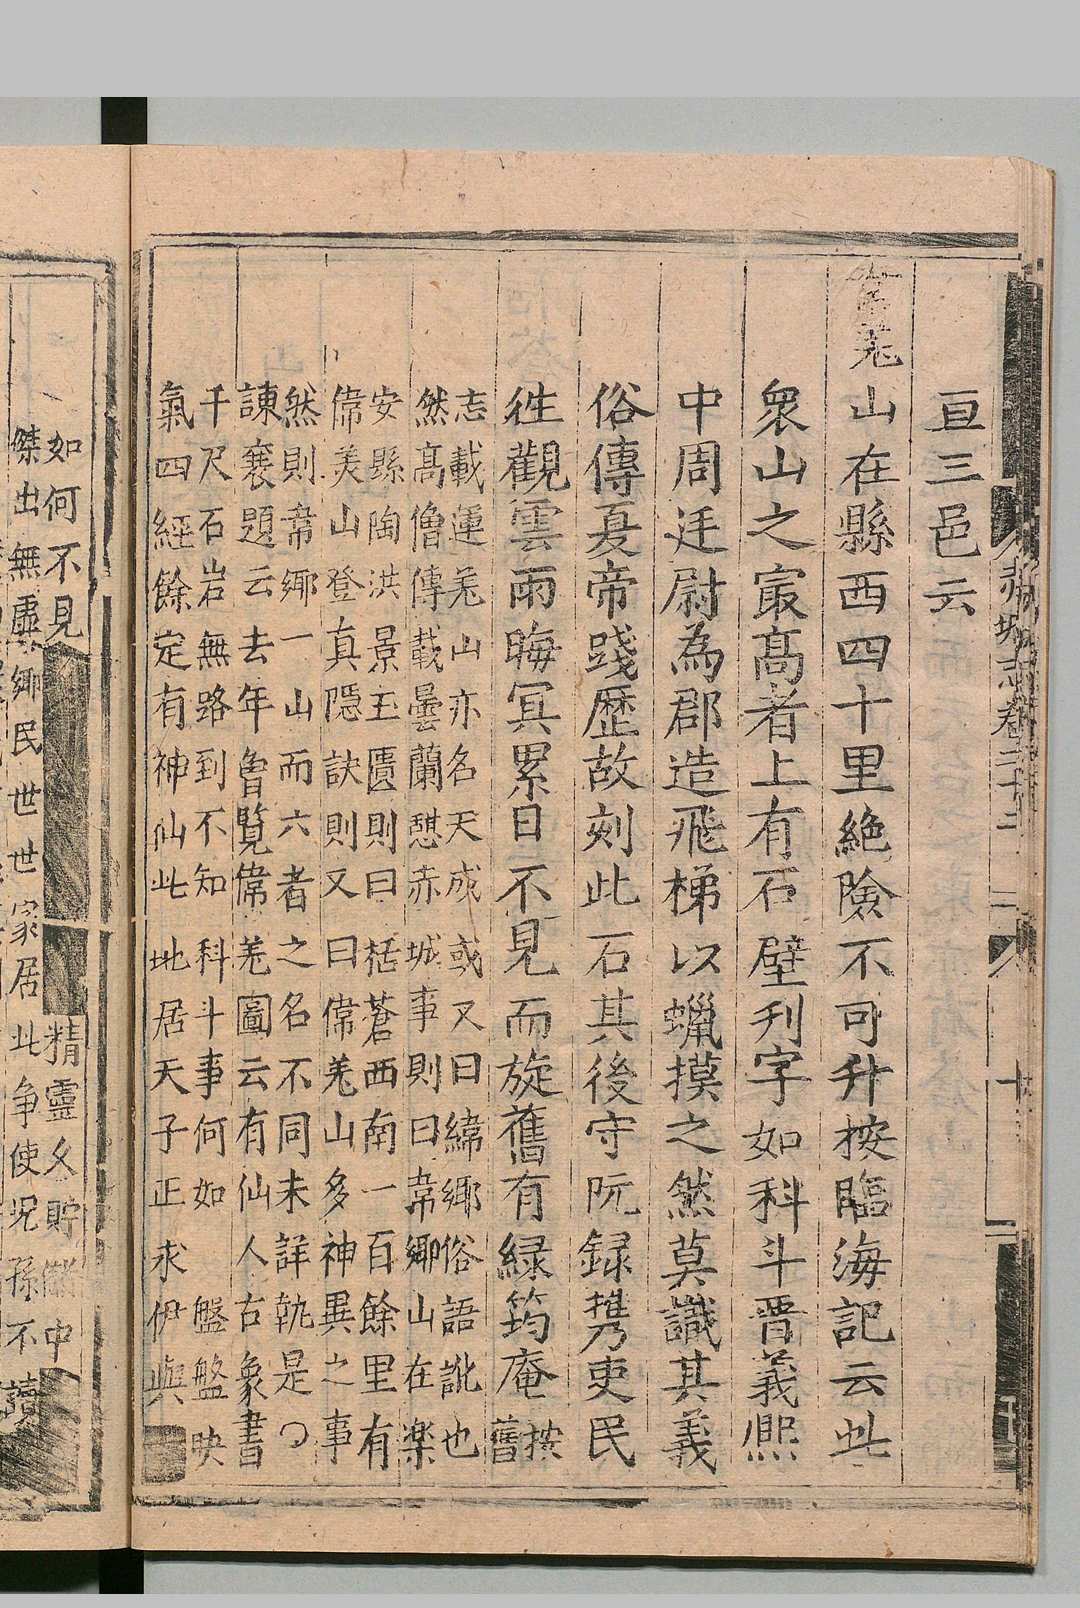 赤城志卷二十二
十
亘三邑云
韋羌山在縣西四十里絶險不可升按臨海記云此
衆山之㝡髙者上有石壁刋字如科斗晋義熈
中周廷尉為郡造飛梯以蠟摸之然莫識其義
俗傳夏帝踐歴故刻此石其後守阮録携吏民
徃觀雲雨晦冥累日不見而旋舊有緑筠庵
按
舊
志載運羌山亦名天成或又曰緯鄉俗語訛也
然髙僧傳載曇蘭憇赤城事則曰韋鄉山在楽
安縣陶洪景玉匱則曰括蒼西南一百餘里有
偉羌山登真隱訣則又曰偉羌山多神異之事
然則韋鄉一山而六者之名不同未詳孰是
諫襄題云去年魯覽偉羌圖云有仙人古象書
千尺石岩無路到不知科斗事何如盤盤映
氣四經餘定有神仙此地居天子正求伊與
如何不見精靈久貯中
傑出無虛鄉民世世家居此争使児孫不讀